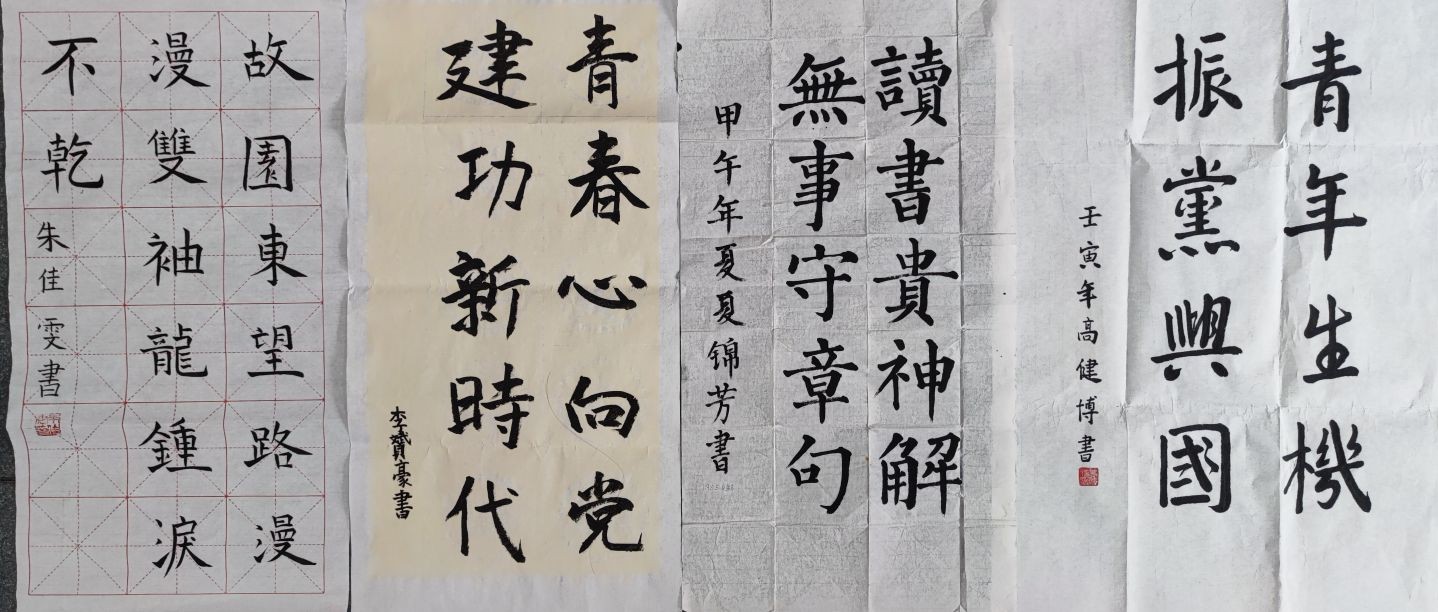 故園東望路漫
漫雙袖龍鍾淚
不乾
朱佳雯書
青春心向党
建功新時代
李贇豪書
讀書貴神解
無事守章句
甲午年夏夏锦芳書
青年生機
振黨興國
壬寅年高健博書